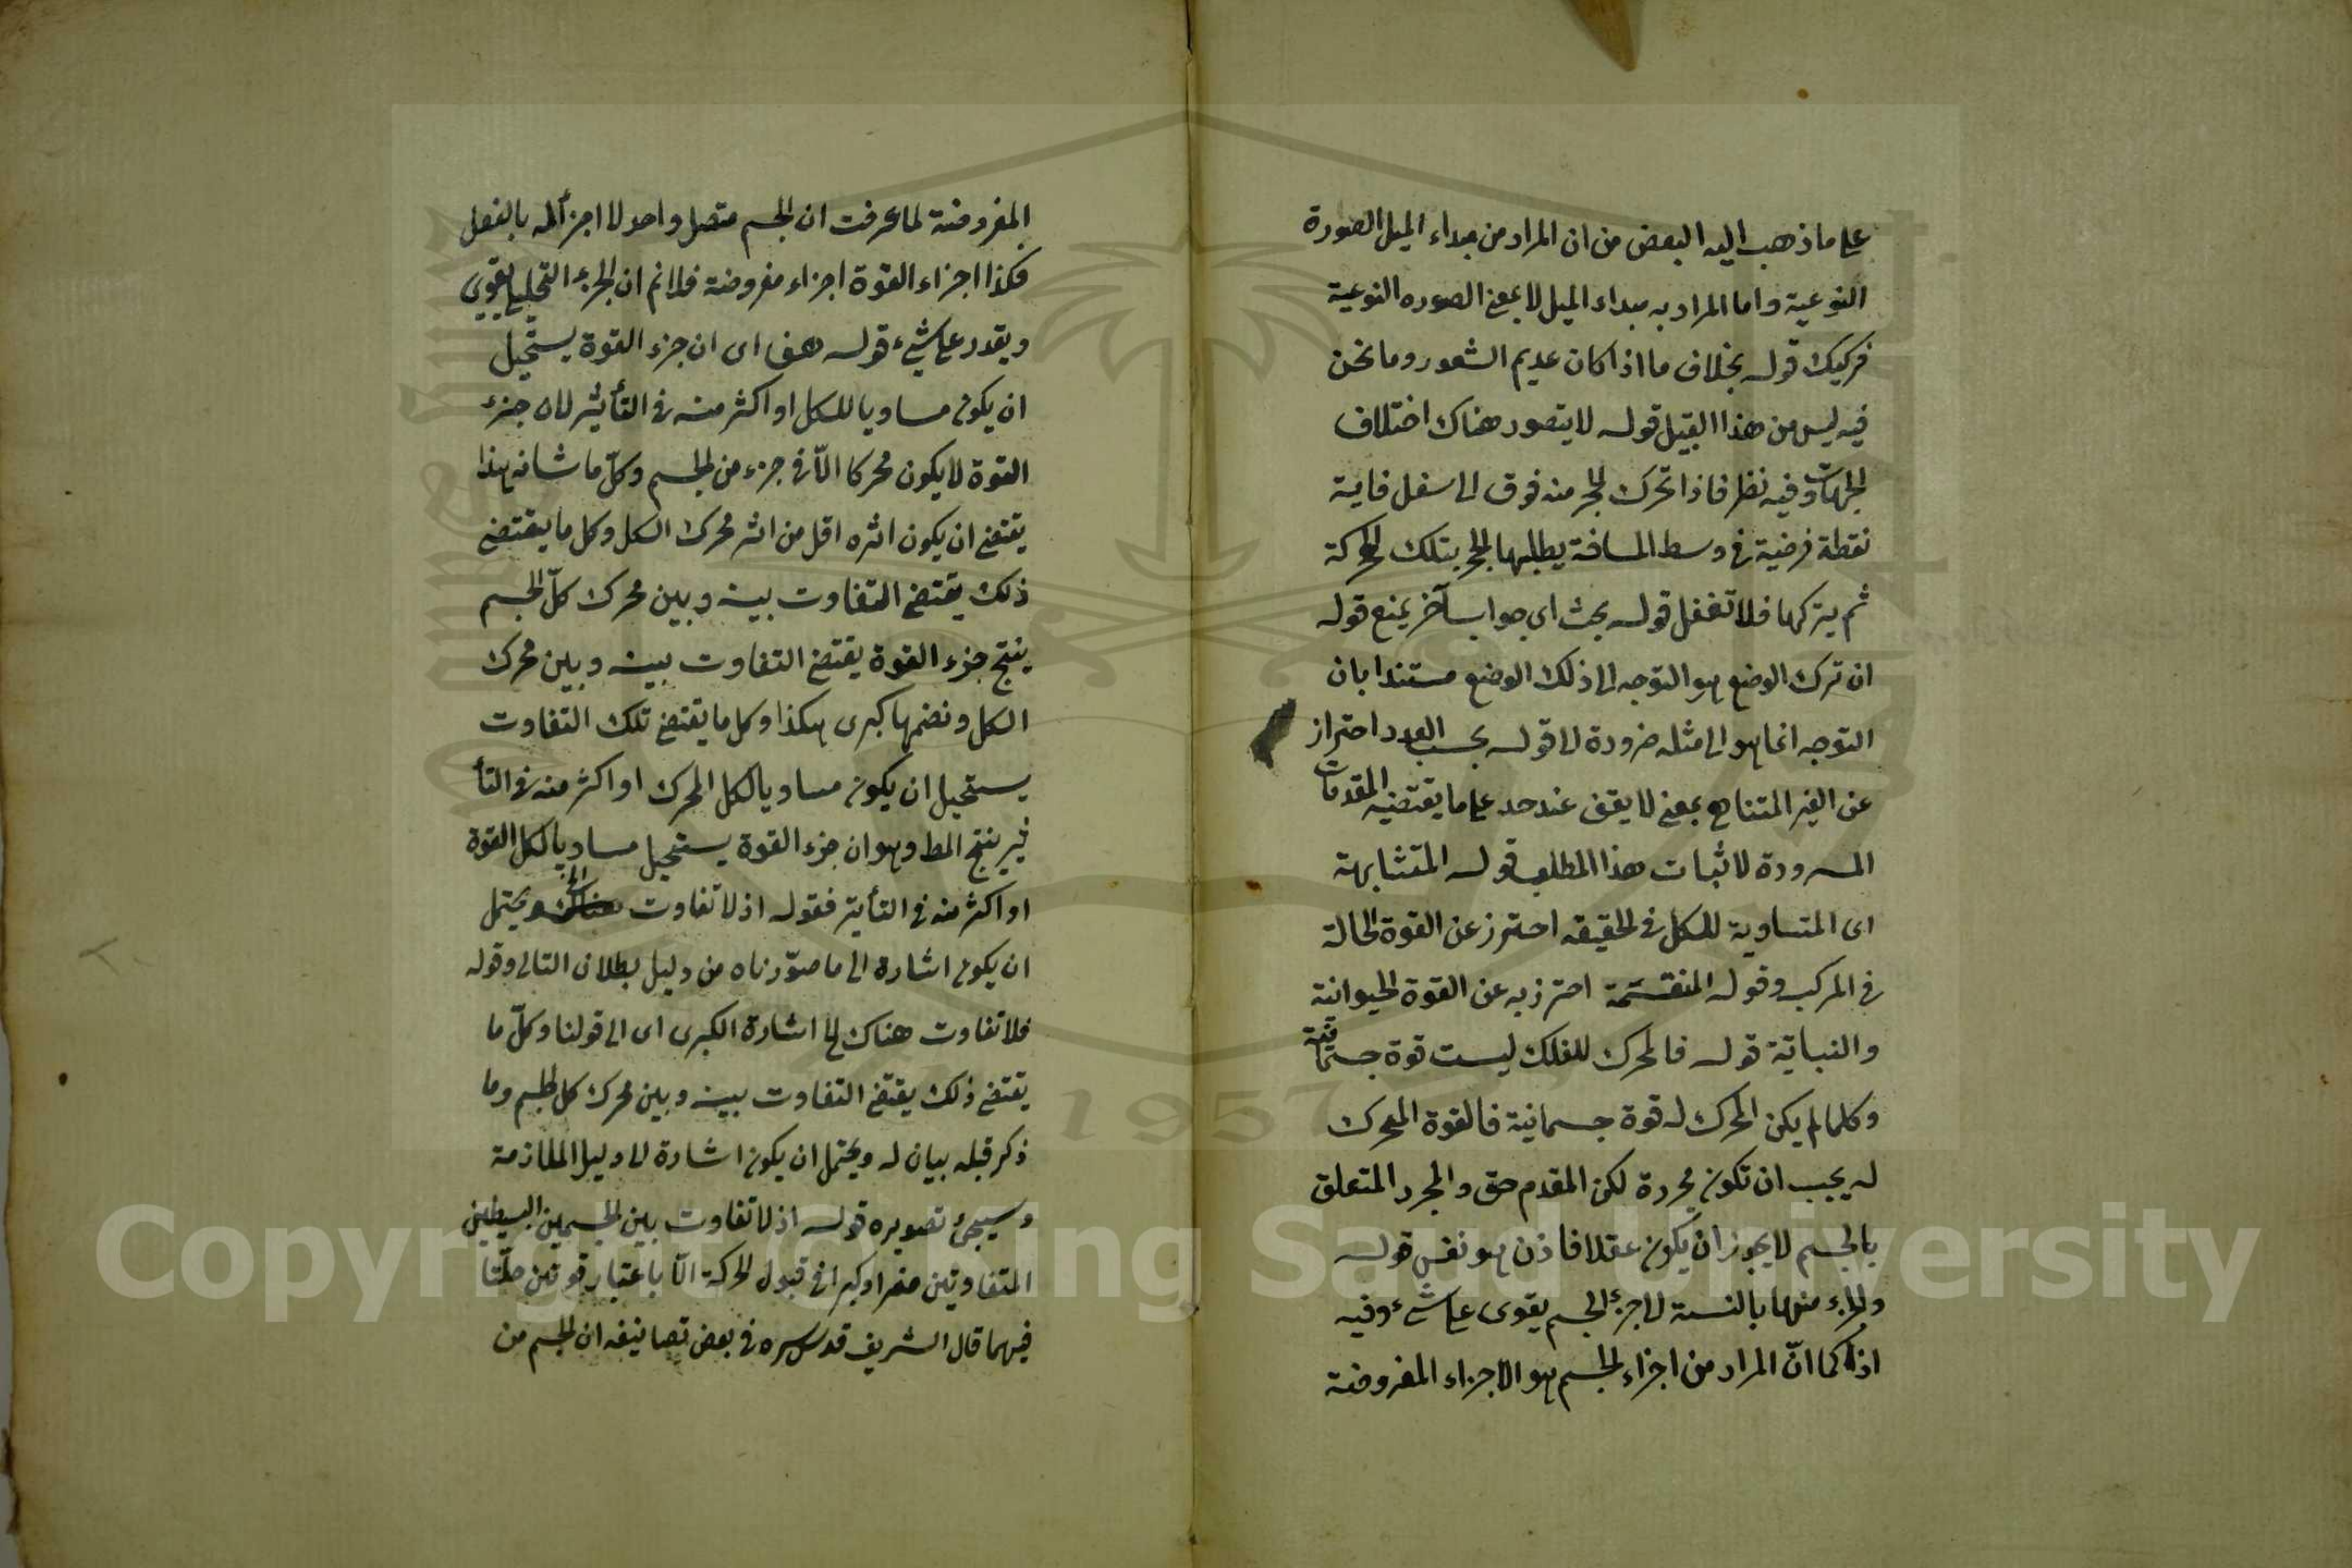 على ما ذهب اليه البعض من ان المراد من مبداء الميل الصورة
النوعية واما المراد به مبداء الميل لا بمعنى الصوره النوعية
فركيك قوله بخلاف ما اذا كان عديم الشعور وما نحن
فيه ليس من هذا القبيل قوله لا يتصور هناك اختلاف
الجهات وفيه نظر فاذا تحرك الحجر منه فوق الى اسفل فاية
نقطة فرضية في وسط المسافة يطلبها الحجر بتلك الحركة
ثم يتركها فلا تغفل قوله بحث اى جواب آخر يمنع قوله
ان ترك الوضع هو التوجه الى ذلك الوضع مستندا بان
التوجه انما هو الى مثله ضرورة قوله بحسب العدد احتراز
عن الغير المتناهى بمعنى لا يقف عند حد على ما يقتضيه المقدمات
المسرودة لاثبات هذا المطلب قوله المتشابهة
اى المتساوية للكل في الحقيقه احترز عن القوة الحالة
في المركب وقوله المنقسمة احترز به عن القوة الحيوانية
والنباتية قوله فالمحرك للفلك ليست قوة جسمانية
وكلما لم يكن المحرك له قوة جسمانية فالقوة المحرك
له يجب ان تكون مجردة لكن المقدم حق والمجرد المتعلق
بالجسم لا يجوز ان يكون عقلا فاذن هو نفس قوله
والجزء منها بالنسبة الى جزء الجسم يقوى على شئ وفيه
اذا كما انّ المراد من اجزاء الجسم هو الاجزاء المفروضة
المفروضة لما عرفت ان الجسم متصل واحد لا اجزأ له بالفعل
فكذا اجزاء القوة اجزاء مفروضة فلانم ان الجزء التحليلى يقوى
ويقدر على شئ قوله هف اى ان جزء القوة يستحيل
ان يكون مساويا للكل او اكثر منه في التأثير لان جزء
القوة لا يكون محركا الاّ في جزء من الجسم وكلّ ما شانه هذا
يقتضى ان يكون اثره اقل من اثر محرك الكل وكل ما يقتضى
ذلك يقتضى التفاوت بينه وبين محرك كلّ الجسم
ينتج جزء القوة يقتضى التفاوت بينه وبين محرك
الكل ونضمها كبرى هكذا وكل ما يقتضى تلك التفاوت
يستحيل ان يكون مساويا لكل المحرك او اكثر منه في التأ
ثير ينتج المط وهو ان جزء القوة يستحيل مساويا لكل القوة
او اكثر منه في التأثير فقوله اذ لا تفاوت الخ يحتمل
ان يكون اشارة الى ما صوّرناه من دليل بطلان التالى وقوله
فلا تفاوت هناك اشارة الكبرى اى الى قولنا وكلّ ما
يقتضى ذلك يقتضى التفاوت بينه وبين محرك كل الجسم وما
ذكر قبله بيان له ويحتمل ان يكون اشارة الى دليل الملازمة
وسيجئ تصويره قوله اذ لا تفاوت بين الجسمين البسيطين
المتفاوتين صغرا وكبرا في قبول الحركة الاّ باعتبار قوتين حلّتا
فيهما قال الشريف قدس سره في بعض تصانيفه ان الجسم من
Copyright © King Saud University
1957